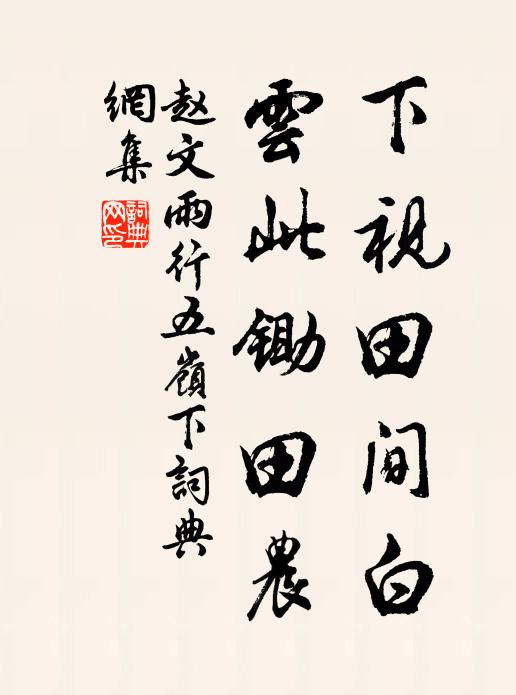 下視田間白
雲此鋤田農
赵文雨行五嶺下詞典
網集
詞典
网印